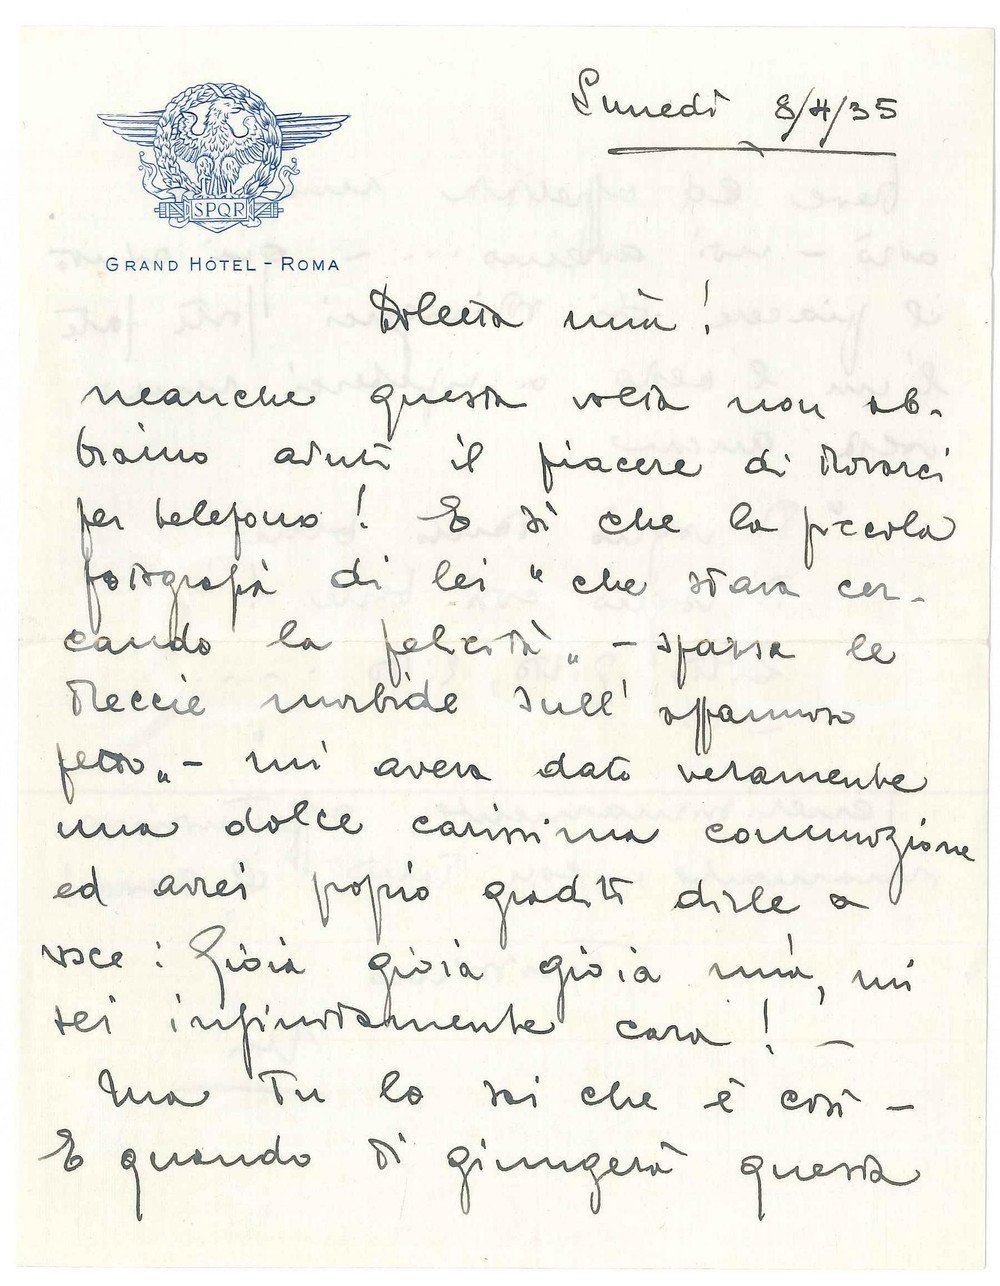 Lunedì 8/4/35
SPQR
GRAND HÔTEL - ROMA
Dolcezza mia!
neanche questa volta non ab-
biamo avuto il piacere di trovarci
per telefono! E sì che la piccola
fotografia di lei "che stava cer-
cando la felicità" - sparsa le
treccie morbide sull'affannoso
petto" - mi aveva dato veramente
una dolce carissima commozione
ed avrei propio gradito dirle a
voce: Gioia gioia gioia mia, mi
sei infinitamente cara! -
Ma Tu lo sai che è così -
E quando ti giungerà questa